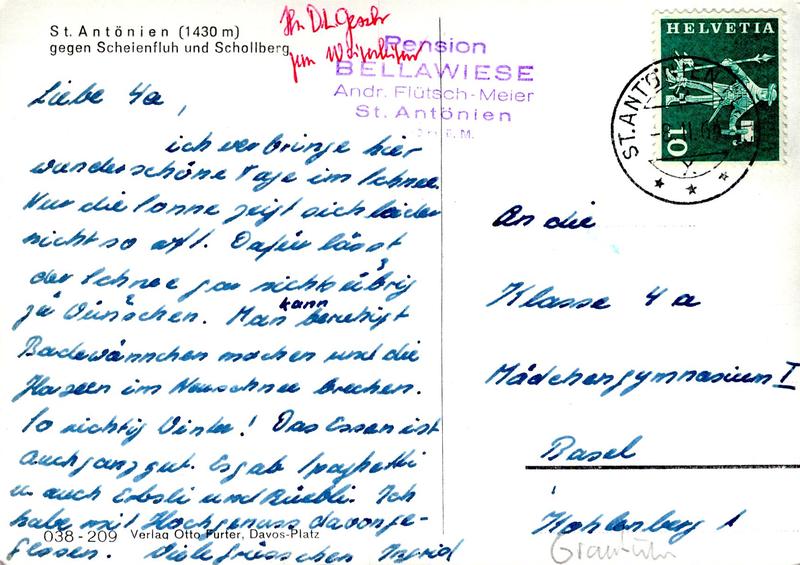 St. Antönien (1430 m)
gegen Scheienfluh und Schollberg
Pension
BELLAWIESE
Andr. Flütsch-Meier
St. Antönien
HELVETIA
10
ST. ANTÖNIEN
Liebe 4a,
ich verbringe hier
wunderschöne Tage im Schnee.
Nur die Sonne zeigt sich leider
nicht so oft. Dafür lässt
der Schnee gar nichts übrig
zu wünschen. Man kann beruhigt
Badewännchen machen und die
Haxen im Neuschnee brechen.
So richtig Winter! Das Essen ist
auch ganz gut. Es gab Spaghetti
u. auch Erbsli und Rüebli. Ich
habe mit Hochgenuss davonge-
gessen. Viele grüsschen Ingrid
038-209 Verlag Otto Furter, Davos-Platz
An die
Klasse 4a
Mädchengymnasium I
Basel
Kohlenberg